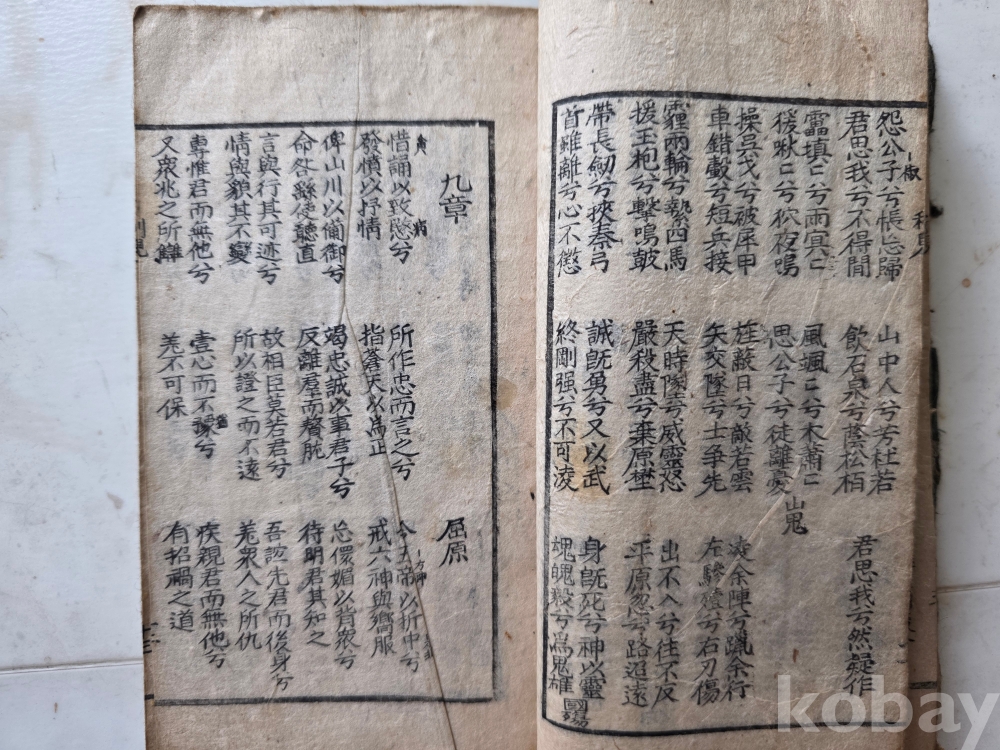 怨公子兮悵忘歸 山中人兮芳杜若
君思我兮不得閒 飲石泉兮蔭松栢 君思我兮然疑作
靁填〻兮雨冥〻 風颯〻兮木蕭〻
猨啾〻兮狖夜鳴 思公子兮徒離憂 山鬼
操吳戈兮被犀甲 旌蔽日兮敵若雲 凌余陣兮躐余行
車錯轂兮短兵接 矢交墜兮士爭先 左驂殪兮右刃傷
霾兩輪兮縶四馬 天時隊兮威靈怒 出不入兮往不反
援玉枹兮擊鳴鼓 嚴殺盡兮棄原壄 平原忽兮路迢遠
帶長劒兮挾秦弓 誠旣勇兮又以武 身旣死兮神以靈
首雖離兮心不懲 終剛强兮不可凌 魂魄毅兮爲鬼雄 國殤
九章 屈原
惜誦以致愍兮 所作忠而言之兮 令五帝以折中兮
發憤以抒情 指蒼天以爲正 戒六神與嚮服
俾山川以備御兮 竭忠誠以事君子兮 忘儇媚以背衆兮
命咎繇使聽直 反離羣而贅肬 待明君其知之
言與行其可迹兮 故相臣莫若君兮 吾誼先君而後身兮
情與貌其不變 所以證之而不遠 羌衆人之所仇
專惟君而無他兮 壹心而不豫兮 疾親君而無他兮
又衆兆之所讎 羌不可保 有招禍之道
kobay